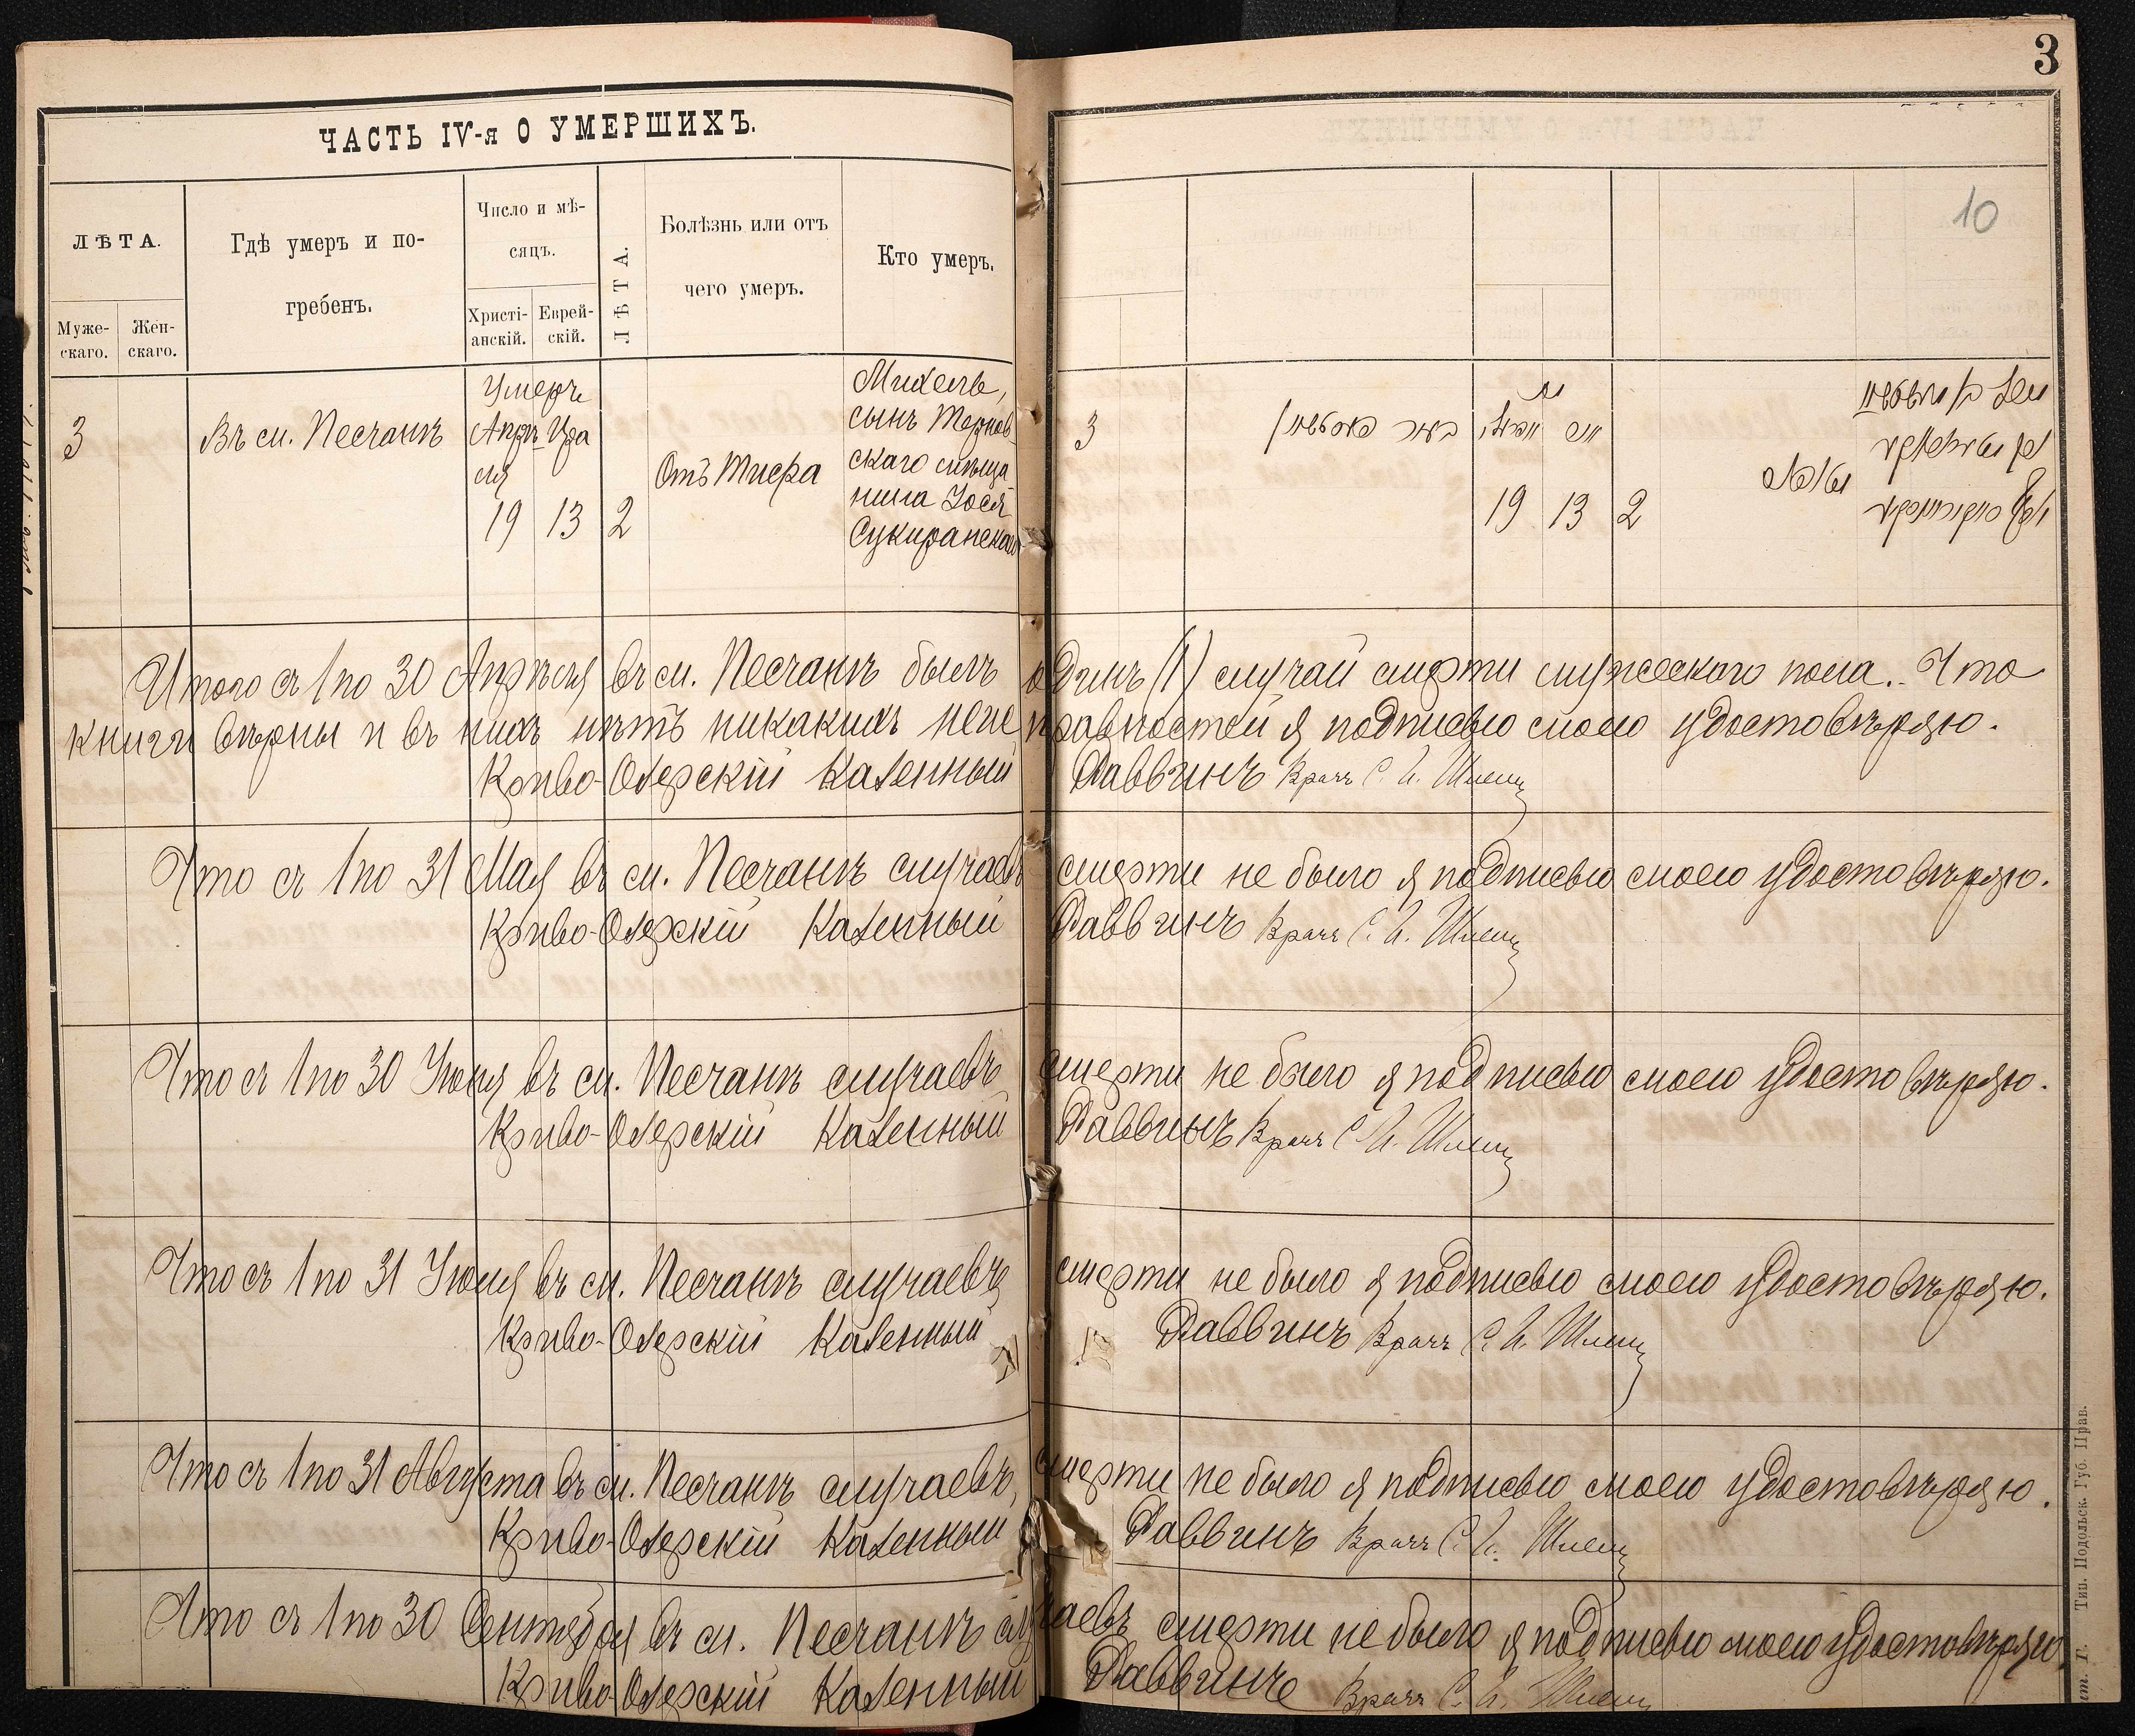 3
ЧАСТЬ IV-я О УМЕРШИХЪ.
10
ЛѢТА.
Муже-
скаго.
Жен-
скаго.
Гдѣ умеръ и по-
гребенъ.
Число и мѣ-
сяцъ.
Христі-
анскій.
Еврей-
скій.
ЛѢТА.
Болѣзнь или отъ
чего умеръ.
Кто умеръ.
3
Въ м. Песчанѣ
Умеръ
Апрѣ-
ля
19
Іра
13
2
Отъ Тифа
Михель,
сынъ Тернов-
скаго мѣща
нина Іося
3
19 13 2
Итого съ 1 по 30 Апрѣля въ м. Песчанѣ былъ одинъ (1) случай смерти мужескаго пола. Что
книги вѣрны и въ нихъ нѣтъ никакихъ неисправностей я подписью моею удостовѣряю.
Криво-Озерскій Казенный Раввинъ Врачъ С. И.
Что съ 1 по 31 Мая въ м. Песчанѣ случаевъ смерти не было я подписью моею удостовѣряю.
Криво-Озерскій Казенный Раввинъ Врачъ С. И.
Что съ 1 по 30 Іюня въ м. Песчанѣ случаевъ смерти не было я подписью моею удостовѣряю.
Криво-Озерскій Казенный Раввинъ Врачъ С. И.
Что съ 1 по 31 Іюля въ м. Песчанѣ случаевъ смерти не было я подписью моею удостовѣряю.
Криво-Озерскій Казенный Раввинъ Врачъ С. И.
Что съ 1 по 31 Августа въ м. Песчанѣ случаевъ смерти не было я подписью моею удостовѣряю.
Криво-Озерскій Казенный Раввинъ Врачъ С. И.
Что съ 1 по 30 Сентября въ м. Песчанѣ случаевъ смерти не было я подписью моею удостовѣряю
Криво-Озерскій Казенный Раввинъ Врачъ С. И.
Тип. Подольск. Губ. Прав.